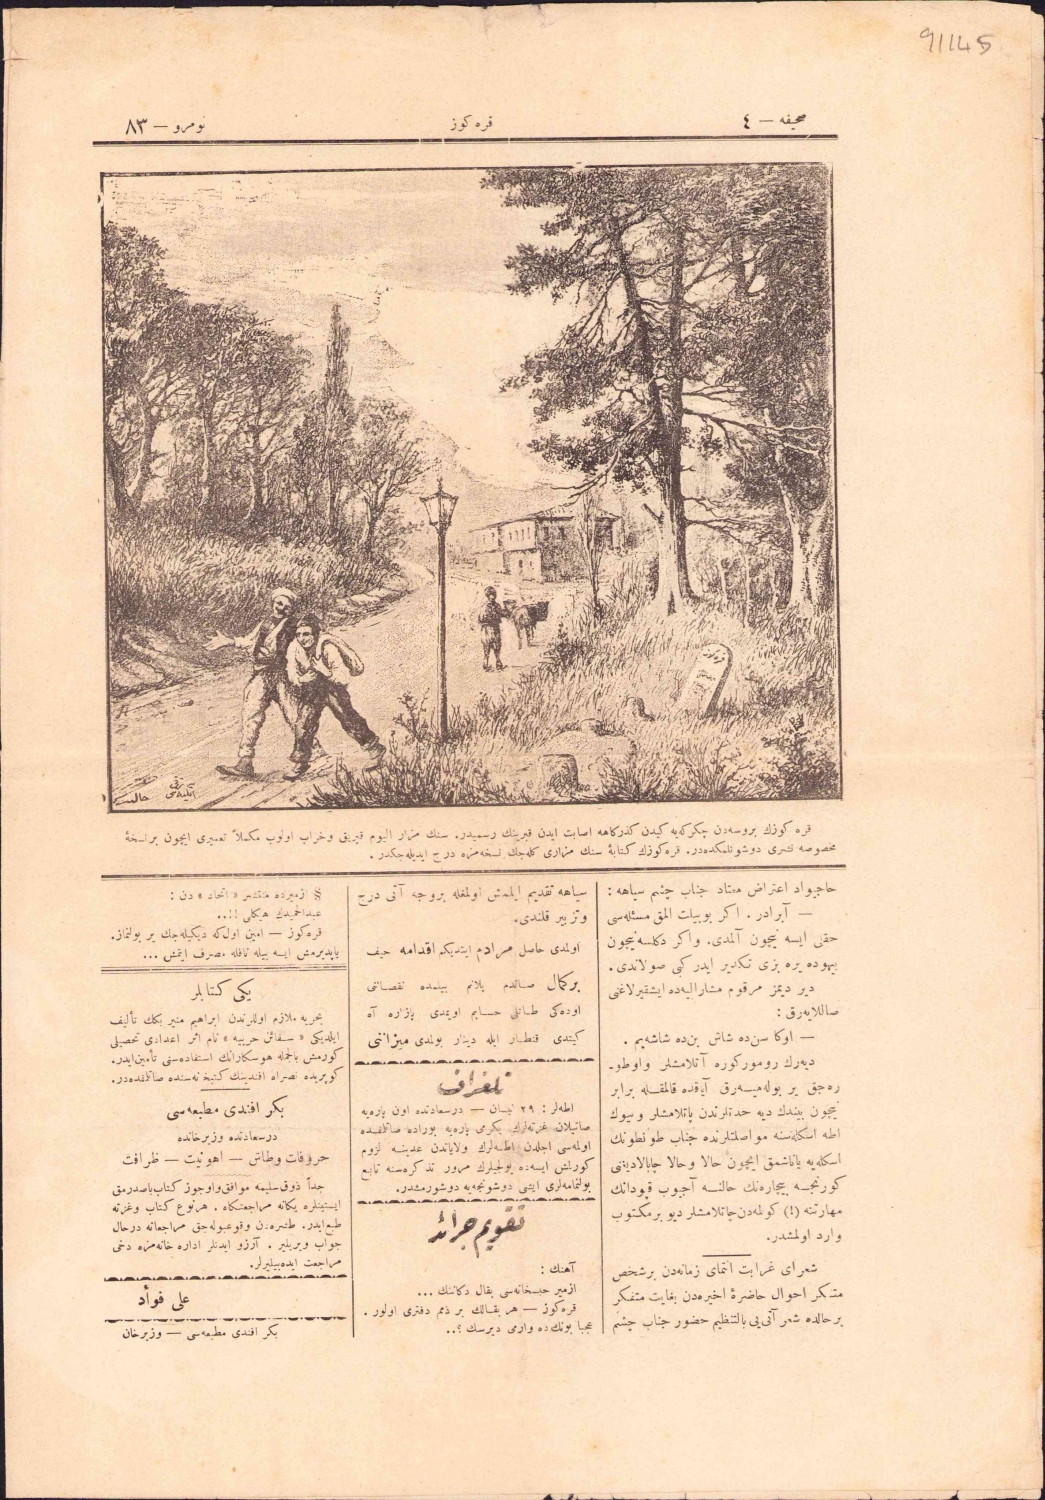 91145
صحيفه — ٤
قره كوز
نومرو — ٨٣
قره كوزك بروسه‌دن چكركه‌يه كيدن كذركاهه اصابت ايدن قبرينك رسميدر. سنك مزار اليوم قيريق وخراب اولوب مكملاً تعميرى ايچون برنسخهٔ
مخصوصه نشرى دوشونلمكده‌در. قره‌كوزك كتابهٔ سنك مزارى كله‌جك نسخه‌مزه درج ايديله‌جكدر .
حاجيواد اعتراض معتاد جناب چشم سياهه :
— آبرادر . اكر بوبيلت آلمق مسئله‌سى
حقلى ايسه نيچون آلمدى. واكر دكلسه نيچون
بيهوده يره بزى تكدير ايدر كبى صولاندى.
دير ديمز مرقوم مشاراليه‌ده ايشقيرلاغنى
صاللايه‌رق :
— اوكا سن‌ده شاش بن‌ده شاشه‌يم .
ديه‌رك رومور كوره آتلامشلر واوطو-
ره‌جق ير بوله‌ميه‌رق آياقده قالمقله برابر
نيچون بيندك ديه حدتلرندن پاتلامشلر وسيوك
اطه اسكله‌سنه مواصلتلرنده جناب طونطونك
اسكله‌يه ياناشمق ايچون حالا وحالا چاپالاديغنى
كورنجه بيچاره‌نك حالنه آجيوب قپودانك
مهارتنه (!) كولمه‌دن چاتلامشلر ديو برمكتوب
وارد اولمشدر.
شعراى غرابت انتماى زمانه‌دن برشخص
متنكر احوال حاضرهٔ اخيره‌دن بغايت متفكر
برحالده شعر آتى‌يى بالتنظيم حضور جناب چشم
سياهه تقديم ايلمش اولمغله بروجه آتى درج
وتزيير قلندى.
اولمدى حاصل مرادم ايتديكم اقدامه حيف
بركمال صاندم يلانم بيلمده نقصانى
اوده‌كى طاتلى حسابم اويمدى پازاره آه
كيتدى قنطار ايله دينار بولمدى ميزانى
تلغراف
اطه‌لر : ٢٩ نيسان — درسعادتده اون پاره‌يه
صاتيلان غزته‌لرك يكرمى پاره‌يه بوراده صاتلمقده
اولمه‌سى اجلدن اطه‌لرك ولاياتدن عدينه لزوم
كورلمش ايسه‌ده يولجيلرك مرور تذكره‌سنه تابع
بولنمامه‌لرى ايشى دوشونجه‌يه دوشورمشدر.
تقويم جرائد
آهنك :
ازمير حبسخانه‌سى بقال دكاننك ...
قره‌كوز — هر بقالك بر ذمم دفترى اولور .
عجبا بونك‌ده وارمى ديرسك ؟..
§ ازميرده منتشر « اتحاد » دن :
عبدالحميدك هيكلى !!..
قره‌كوز — امين اول‌كه ديكيله‌جك ير بولنماز.
ياپديرمش ايسه بيله نافله مصرف ايتمش ...
يكى كتابلر
بحريه ملازم اوللرندن ابراهيم منير بكك تأليف
ايلديكى « سفائن حربيه » نام اثر اعدادى تحصيلى
كورمش بالجمله هوسكارانك استفاده‌سنى تأمين‌ايدر.
كوپريده نصراه افندينك كتبخانه‌سنده صاتلمقده‌در.
بكر افندى مطبعه‌سى
درسعادتده وزيرخانده
حروفات وطاش — اهونيت — ظرافت
جداً ذوق‌سليمه موافق‌واوجوز كتاب‌باصدرمق
ايستينلره يكانه مراجعتكاه . هرنوع كتاب وغزته
طبع‌ايدر. طشره‌دن وقوعبوله‌جق مراجعاته درحال
جواب ويريلير . آرزو ايدنلر اداره خانه‌مزه دخى
مراجعت ايده‌بيليرلر.
على فوأد
بكر افندى مطبعه‌سى — وزيرخان